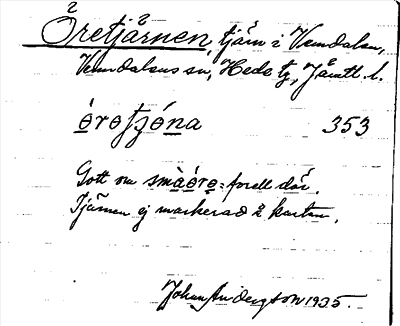 Öretjärnen, tjärn i Vemdalen,
Vemdalens sn, Hede tg, Jämtl. l.
öretjé̱na 353
Gott om smàö̀rə = forell där.
Tjärnen ej markerad å kartan.
Johan Andersson 1935.